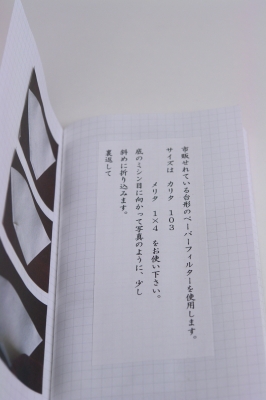 市販せれている台形のペーパーフィルターを使用します。
サイズは カリタ 103
メリタ 1×4 をお使い下さい。
底のミシン目に向かって写真のように、少し
斜めに折り込みます。
裏返して